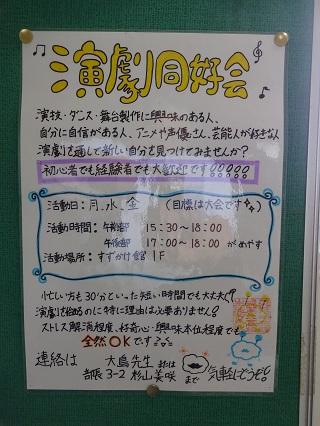 演劇同好会
演技・ダンス・舞台製作に興味のある人、
自分に自信がある人、アニメや声優さん、芸能人が好きな人
演劇を通して新しい自分を見つけてみませんか?
初心者でも経験者でも大歓迎です!!!!!
活動日:月、水、金 (目標は大会です)
活動時間:午前部 15:30〜18:00
午後部 17:00〜18:00 がめやす
活動場所:すずかけ館1F
忙しい方も30分といった短い時間でも大丈夫!
演劇を始めるのに特に理由は必要ありません!
ストレス解消程度、好奇心・興味本位程度でも
全然OKです
連絡は 大島先生 または
部長 3-2 杉山美咲 まで 気軽にどうぞ!